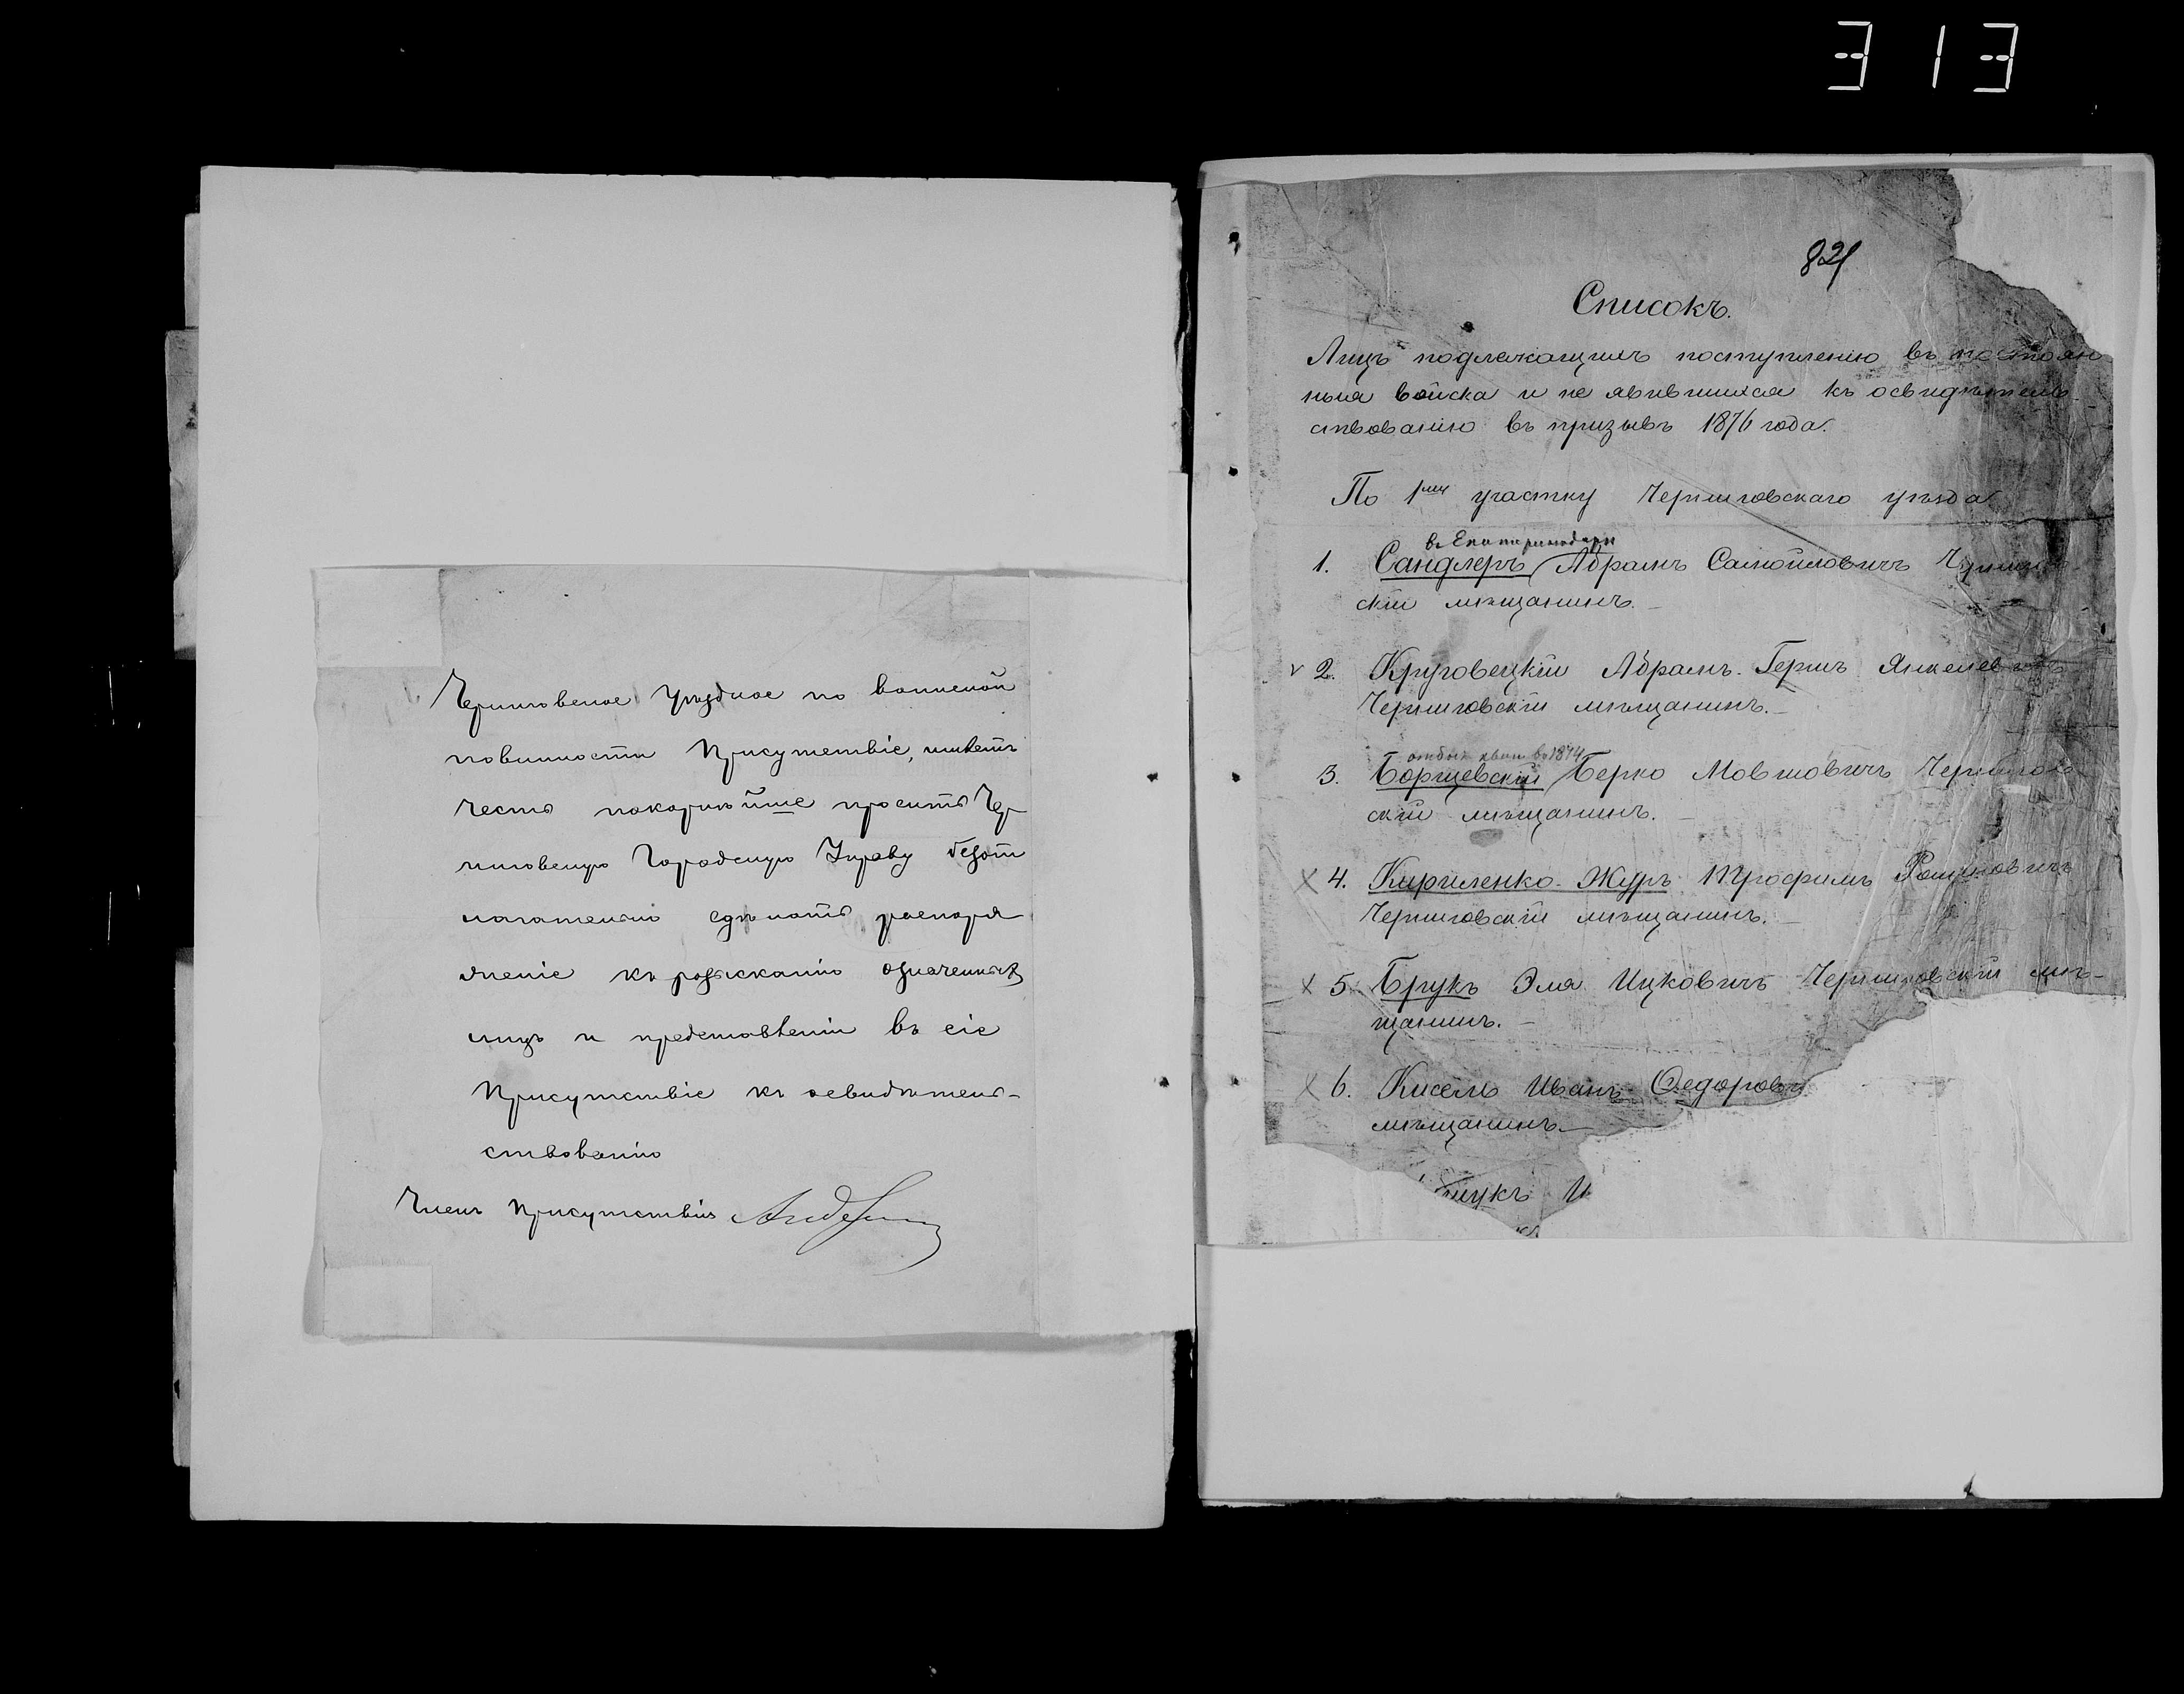 313
Черниговское Уѣздное по воинской
повинности Присутствіе, имѣетъ
честь покорнѣйше просить Чер
ниговскую Городскую Управу безот
лагательно сдѣлать распоря
женіе къ розысканію означенныхъ
лицъ и представленіи въ сіе
Присутствіе къ освидѣтель-
ствованію
Членъ Присутствія
821
Списокъ.
Лицъ подлежащихъ поступленію въ постоян
ныя войска и не явившихся къ освидѣтель-
ствованію въ призывъ 1876 года.
По 1му участку Черниговскаго уѣзда
въ Екатеринодарѣ
1. Сандлеръ Абрамъ Самойловичъ Чернигов-
скій мѣщанинъ.–
v 2. Круговецкій Абрамъ-Гершъ Янкелевичъ
Черниговскій мѣщанинъ.–
отбыл повин въ 1874
3. Борщевскій Берко Мовшовичъ Чернигов-
скій мѣщанинъ.–
х 4. Кириленко-Журъ Трофимъ Романовичъ
Черниговскій мѣщанинъ.–
х 5. Брукъ Эля Ицковичъ Черниговскій мѣ-
щанинъ.–
х 6. Кисель Иванъ Ѳедоров
мѣщанинъ.–
щукъ И